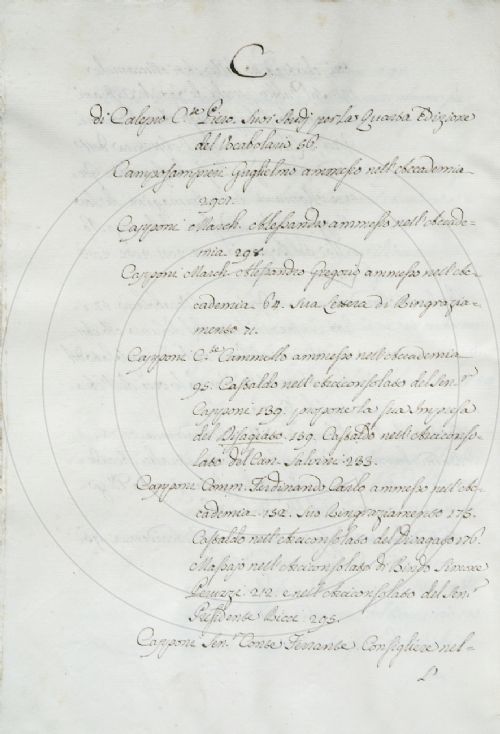 C.
di Calepio C.te Piero. Suoi Studj per la Quarta Edizione
del Vocabolario 66.
Camposampieri Guglielmo ammesso nell'Accademia
Capponi March. Alessandro ammesso nell'Accade=
mia 298.
Capponi March. Alessandro Gregorio ammesso nell'Ac=
cademia 64. Sua Lettera di Ringrazia=
mento 71.
Capponi C.te Cammillo ammesso nell'Accademia
95. Castaldo nell'Arciconsolato del Sen.r
Capponi 139. propone la sua Impresa
del Disagiato 139. Castaldo nell'Arciconso=
lato del Can. Salvini 233.
Capponi Comm. Ferdinando Carlo ammesso nell'Ac=
cademia 152. Suo Ringraziamento 175.
Castaldo nell'Arciconsolato del Divagato 176.
Massajo nell'Arciconsolato di Bindo Simone
Peruzzi 212. e nell'Arciconsolato del Sen.r
Presidente Ricci 295.
Capponi Sen.r Conte Ferrante Consigliere nel=
l'